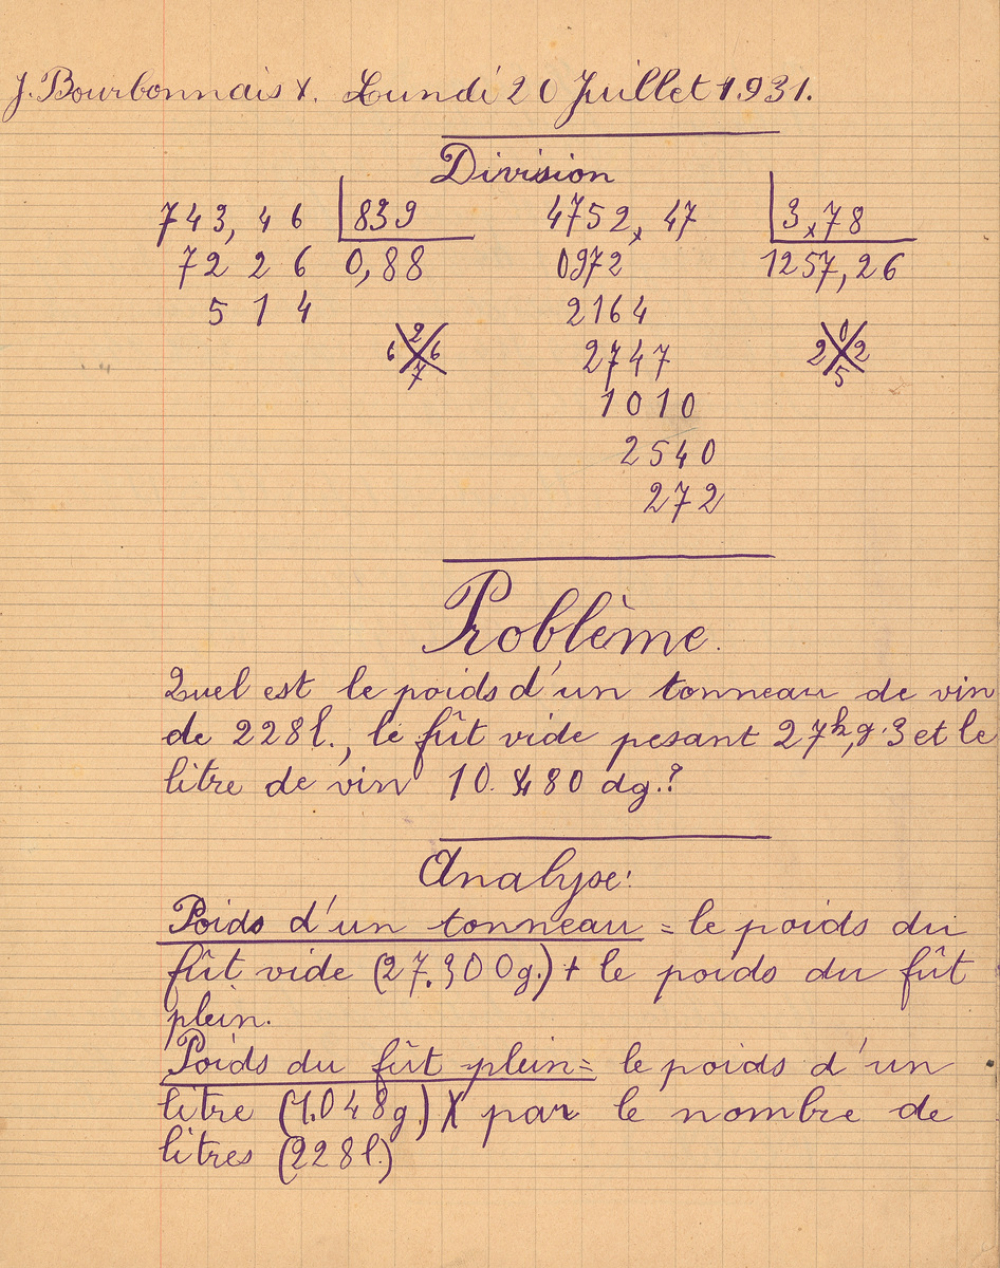 J. Bourbonnais x. Lundi 20 Juillet 1.931.
Division
743,46 839
7226 0,88
514
2
6 6
7
4752,47 3,78
0972 1257,26
2164
2747
1010
2540
272
0
2 2
5
Problème.
Quel est le poids d'un tonneau de vin
de 228l., le fût vide pesant 27kg,3 et le
litre de vin 10.480 dg.?
Analyse:
Poids d'un tonneau = le poids du
fût vide (27.300g.) + le poids du fût
plein.
Poids du fût plein = le poids d'un
litre (1.048g.) X par le nombre de
litres (228l.)